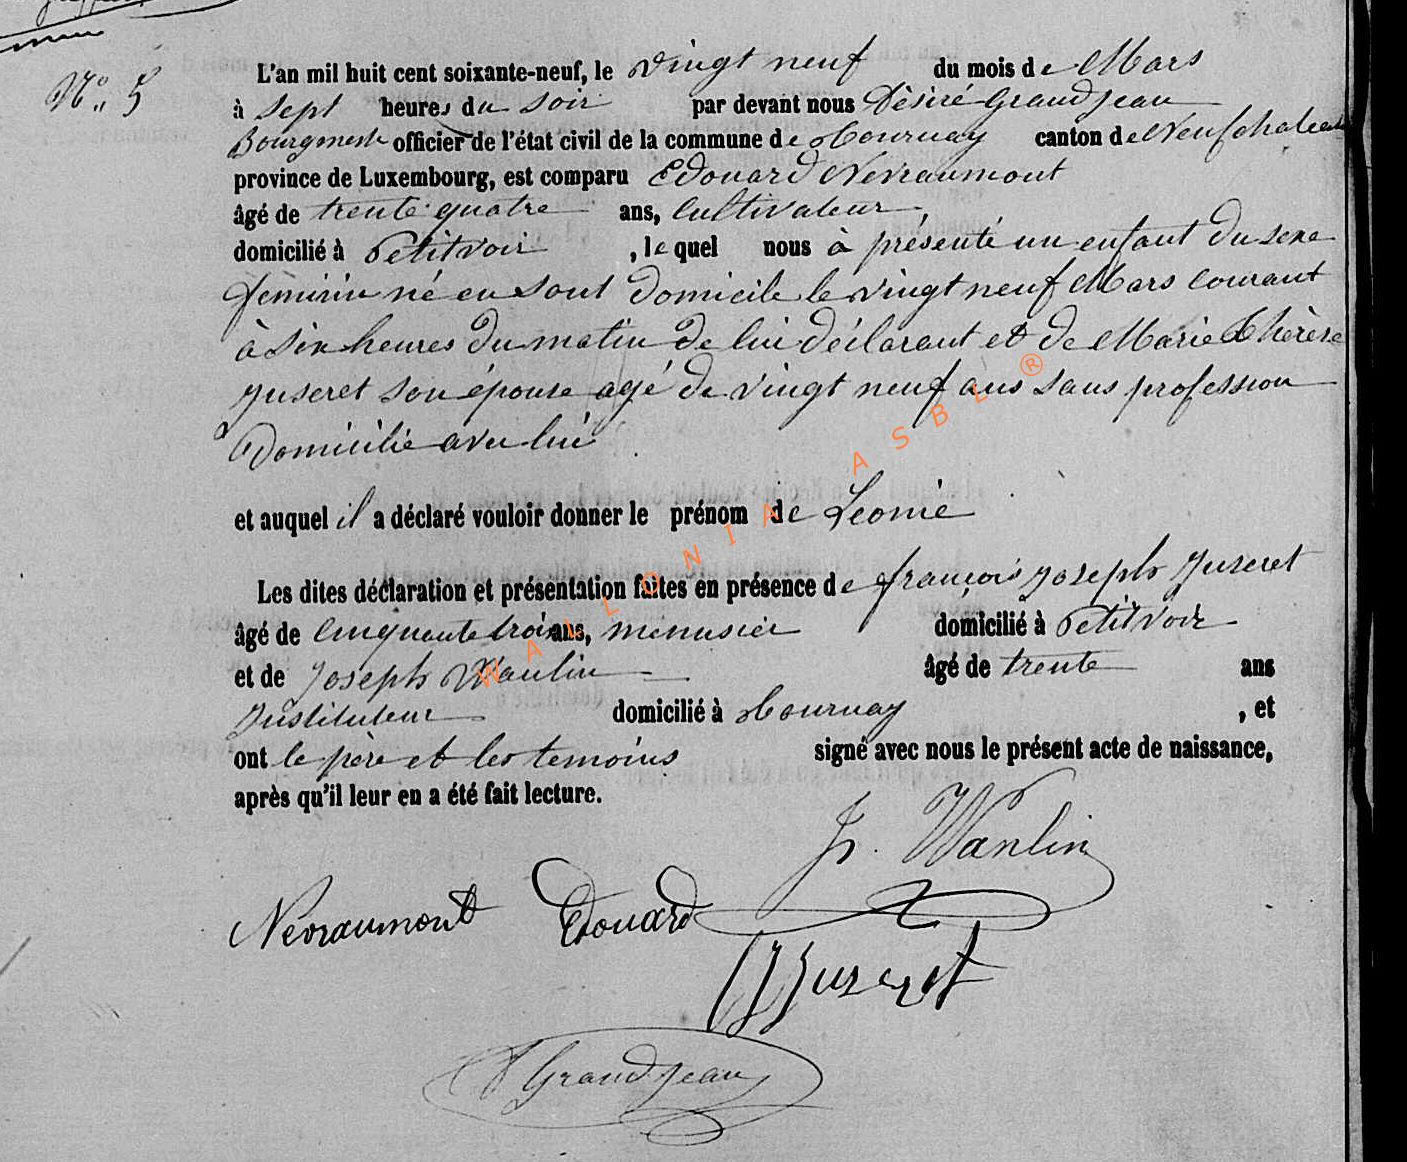 N° 5
L'an mil huit cent soixante-neuf, le vingt neuf du mois de Mars
à sept heures du soir par devant nous Désiré Grandjean
Bourgmestre officier de l'état civil de la commune de Tournay canton de Neufchateau
province de Luxembourg, est comparu Edouard Nevraumont
âgé de trente quatre ans, cultivateur,
domicilié à Petitvoir, lequel nous à présenté un enfant du sexe
féminin né en sont domicile le vingt neuf Mars courant
à six heures du matin de lui déclarant et de Marie Thérèse
Juseret son épouse agé de vingt neuf ans sans profession
Domicilié avec lui
et auquel il a déclaré vouloir donner le prénom de Léonie
Les dites déclaration et présentation faites en présence de françois Joseph Juseret
âgé de cinquante trois ans, menusier domicilié à Petitvoir
et de Joseph Wanlin âgé de trente ans
Instituteur domicilié à Tournay, et
ont le père et les temoins signé avec nous le présent acte de naissance,
après qu'il leur en a été fait lecture.
Js. Wanlin
Nevraumont Edouard
Juseret
D Grandjean
WALLONIA ASBL ®